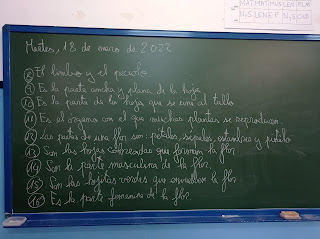 MAT MAT MUS LEN PLAS
Martes, 18 de enero de 2022
8) El limbo y el peciolo
9) Es la parte ancha y plana de la hoja
10) Es la parte de la hoja que se une al tallo
11) Es el órgano con el que muchas plantas se reproducen
12) Las partes de una flor son: pétalos, sépalos, estambres y pistilo
13) Son las hojas coloreadas que forman la flor
14) Son la parte masculina de la flor.
15) Son las hojitas verdes que envuelven la flor
16) Es la parte femenina de la flor.